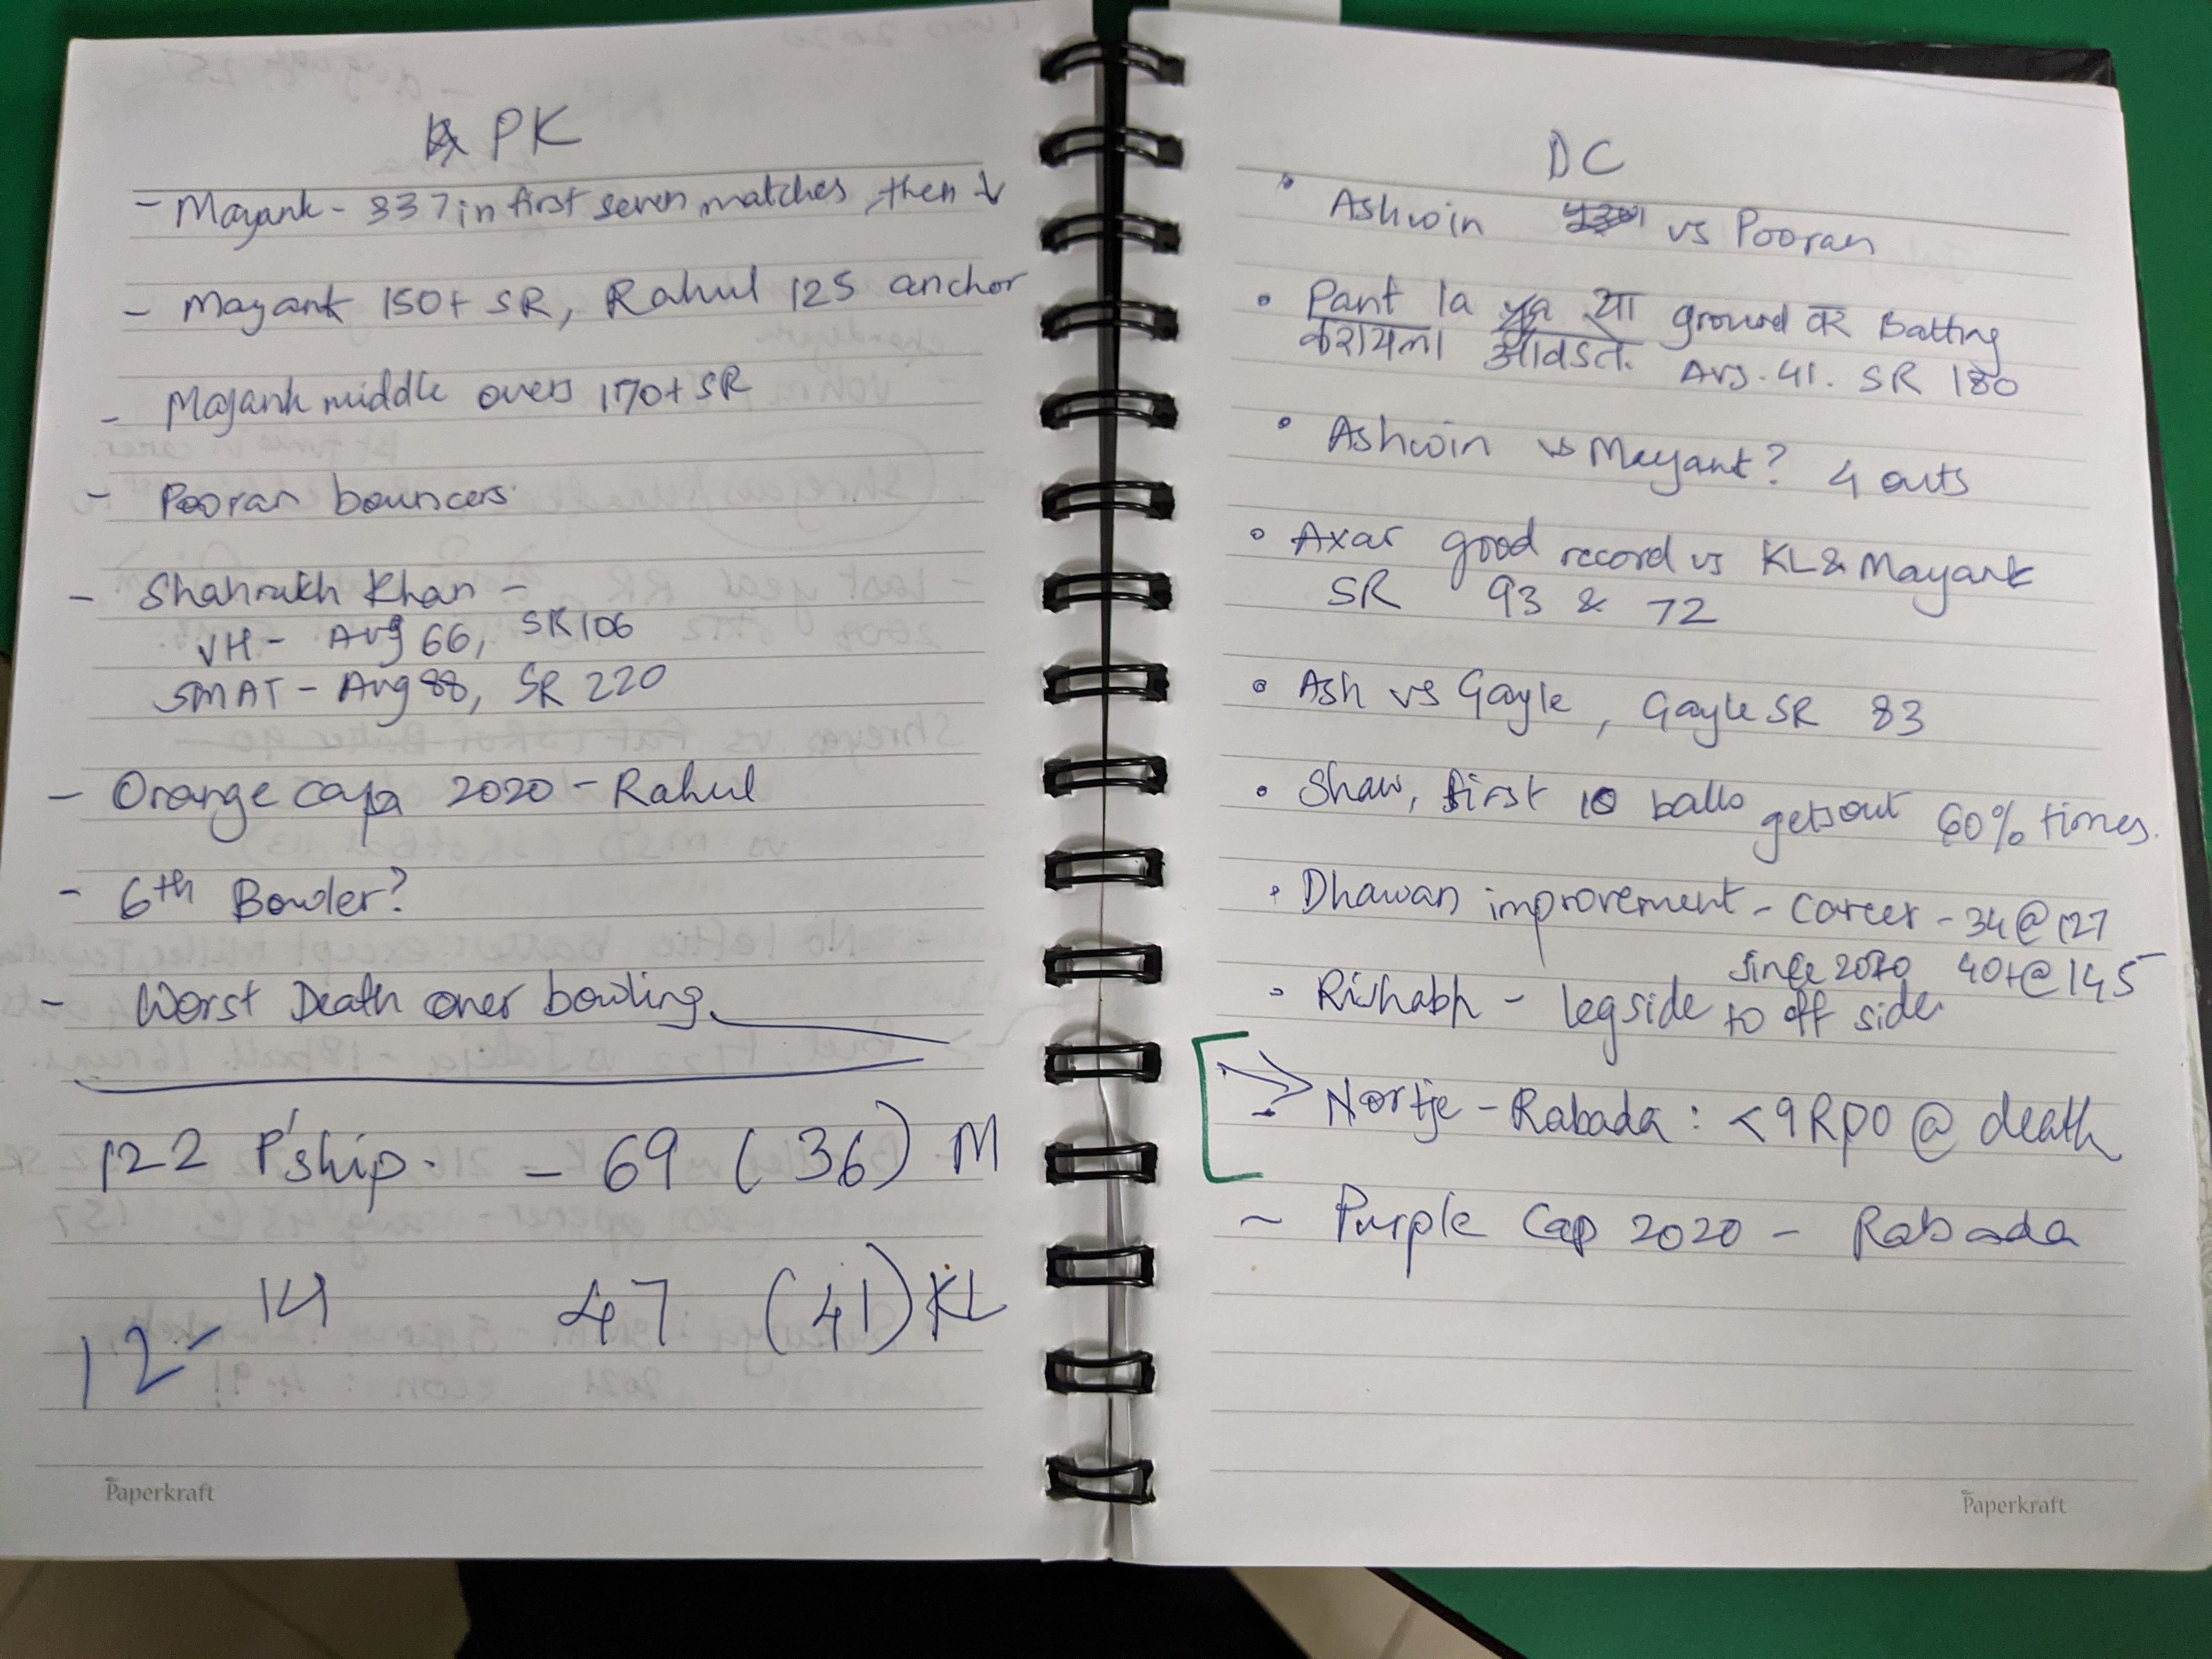 PK
- Mayank - 337 in first seven matches, then ↓
- Mayank 150+ SR, Rahul 125 anchor
- Mayank middle overs 170+ SR
- Pooran bouncers
- Shahrukh Khan -
VH - Avg 66, SR 106
SMAT - Avg 88, SR 220
- Orange cap 2020 - Rahul
- 6th Bowler?
- Worst Death over bowling
122 P'ship. - 69 (36) M
14 47 (41) KL
12
Paperkraft
DC
• Ashwin vs Pooran
• Pant la या ground वर Batting
करायला आवडत. Avg. 41. SR 180
• Ashwin vs Mayank? 4 outs
• Axar good record vs KL & Mayank
SR 93 & 72
• Ash vs Gayle, Gayle SR 83
• Shaw, first 10 balls gets out 60% times.
• Dhawan improvement - Career - 34@127
since 2020 40+@145
• Rishabh - legside to off side
→ - Nortje - Rabada : <9 RPO @ death
- Purple Cap 2020 - Rabada
Paperkraft